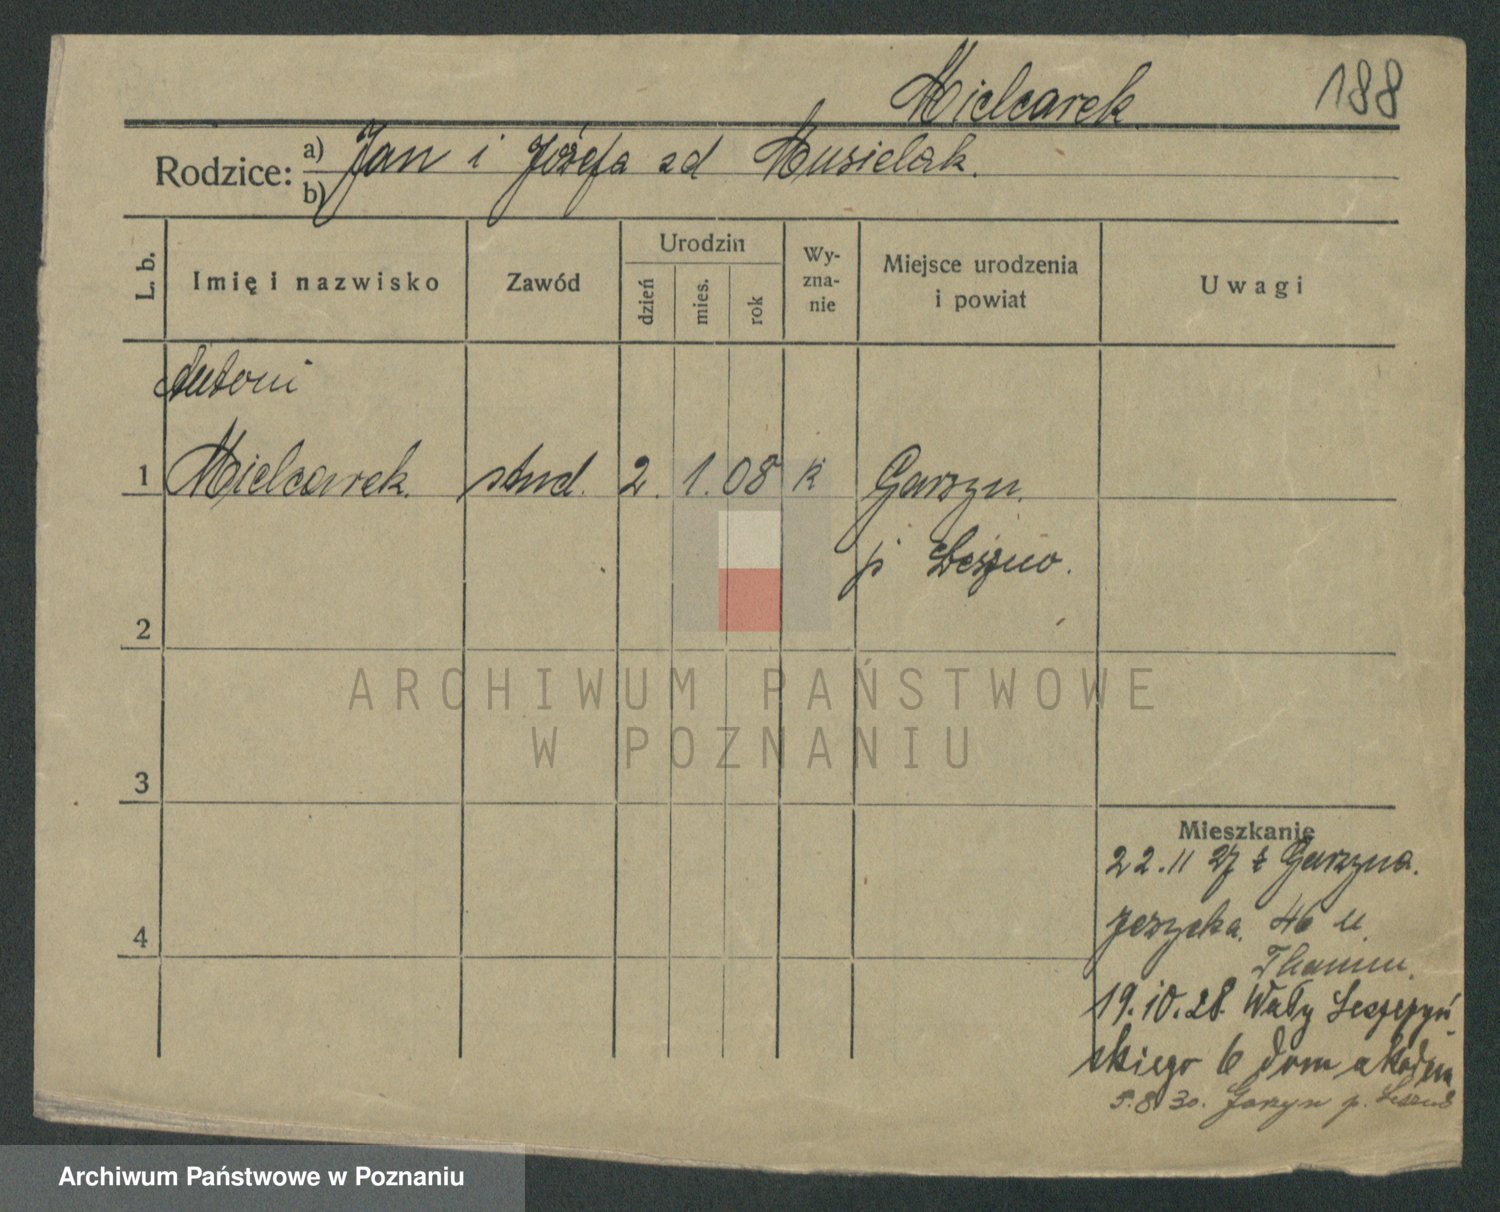 Mielcarek
188
Rodzice: a) Jan i Józefa zd Musielak.
b)
L. b.
Imię i nazwisko
Zawód
Urodzin
dzień
mies.
rok
Wy-
zna-
nie
Miejsce urodzenia
i powiat
Uwagi
Antoni
1 Mielcarek. stud. 2. 1. 08 k Garzyn.
p Leszno.
2
3
4
ARCHIWUM PAŃSTWOWE
W POZNANIU
Mieszkanie
22.11 27 z Garzyna.
Jeżycka. 46 u.
19.10.28 Wały Leszczyń
skiego 6 dom akadem
5.8.30. Garzyn p. Leszno
Archiwum Państwowe w Poznaniu